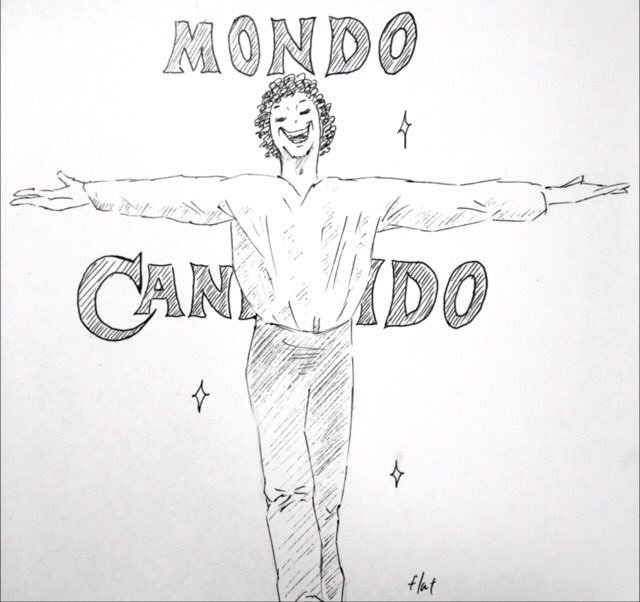 MONDO
CAN IDO
flat